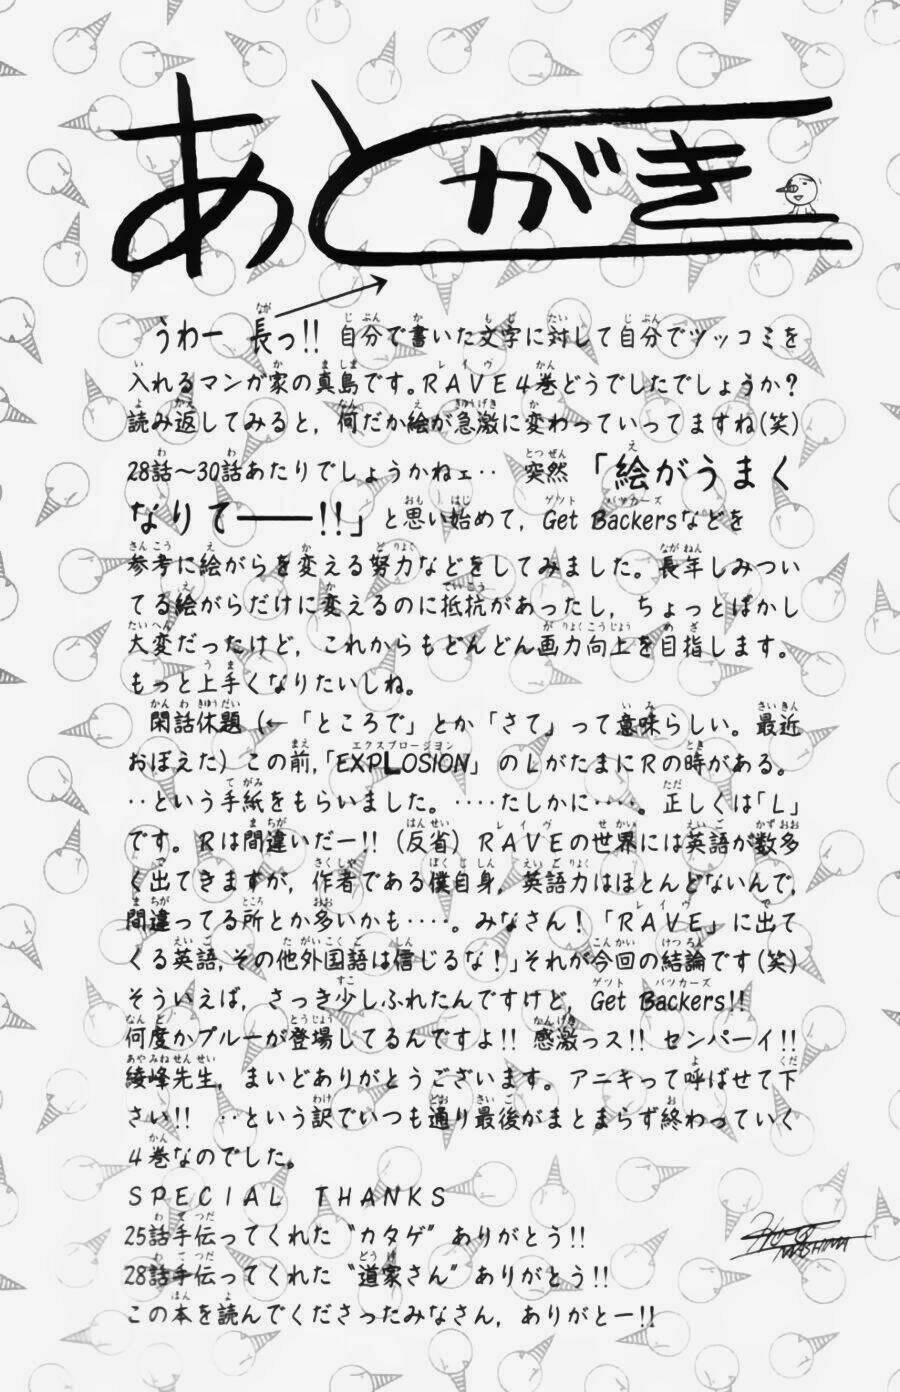 あとがき
うわー 長っ!! 自分で書いた文字に対して自分でツッコミを
入れるマンガ家の真島です。RAVE4巻どうでしたでしょうか?
読み返してみると, 何だか絵が急激に変わっていってますね(笑)
28話〜30話あたりでしょうかねェ‥ 突然「絵がうまく
なりてーー!!」と思い始めて, Get Backersなどを
参考に絵がらを変える努力などをしてみました。長年しみつい
てる絵がらだけに変えるのに抵抗があったし, ちょっとばかし
大変だったけど, これからもどんどん画力向上を目指します。
もっと上手くなりたいしね。
閑話休題 (←「ところで」とか「さて」って意味らしい。最近
おぼえた) この前,「EXPLOSION」のLがたまにRの時がある。
‥という手紙をもらいました。‥‥たしかに‥‥。正しくは「L」
です。Rは間違いだー!! (反省) RAVEの世界には英語が数多
く出てきますが, 作者である僕自身, 英語力はほとんどないんで,
間違ってる所とか多いかも‥‥。みなさん!「RAVE」に出て
くる英語, その他外国語は信じるな!」それが今回の結論です(笑)
そういえば, さっき少しふれたんですけど, Get Backers!!
何度かプルーが登場してるんですよ!! 感激っス!! センパーイ!!
綾峰先生, まいどありがとうございます。アニキって呼ばせて下
さい!! ‥という訳でいつも通り最後がまとまらず終わっていく
4巻なのでした。
SPECIAL THANKS
25話手伝ってくれた "カタゲ" ありがとう!!
28話手伝ってくれた "道家さん" ありがとう!!
この本を読んでくださったみなさん, ありがとー!!
HIRO MASHIMA